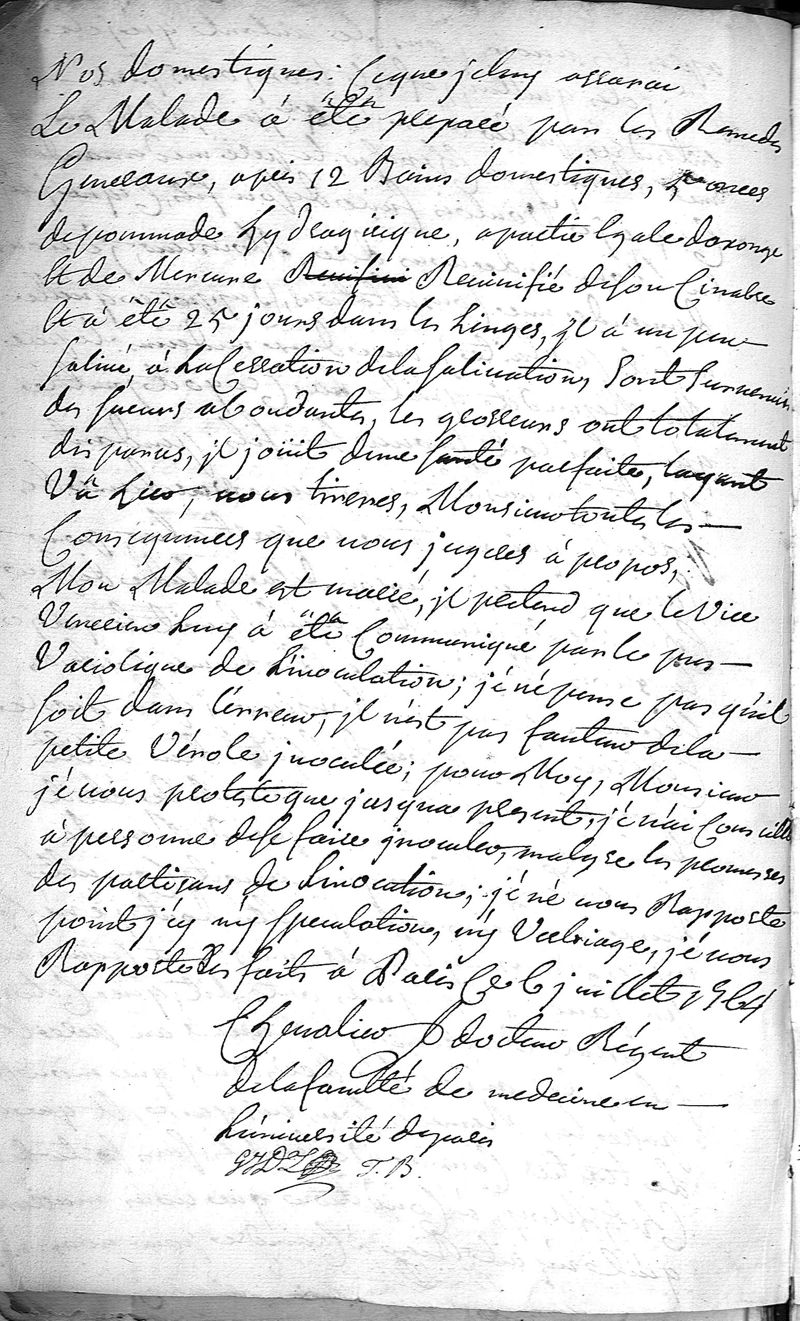 Nos domestiques: Ce que je luy assurai
Le Malade à été preparé par les Remedes
Generaux, apres 12 Bains domestiques, 5 onces
de pommade hydragirique, a partie Egale doxonge
Et de Mercure Revivifié de son Cinabre
Et à été 25 jours dans les Linges, jl à un peu
salivé, à La Cessation de la Salivation, Sont Survenus
des sueurs abondantes, les grosseurs ont totalement
disparus, jl joüit dune santé parfaite,
vous tirerés, Monsieur toutes les
Consequences que vous jugerés à propos,
Mon Malade est marié, jl pretend que le Vice
Venerien Luy à été Communiqué par le pus
Variolique de Linoculation; jé né pense pas qu'il
soit dans l'érreur, jl n'est pas fauteur dela
petite Vérole jnoculée; pour Moy, Monsieur
jé vous proteste que jusqua present, jé n'ai Conseillé
à personne de se faire jnoculer, malgre les promesses
des partisans de Linocution; jé né vous Rapporte
point jcy ny speculation, ny Verbiage, jé vous
Rapporte des faits à Paris Ce 6 juillet 1764
Chevalier docteur Régent
de la faculté de medecine en
Luniversité de paris
T. B.